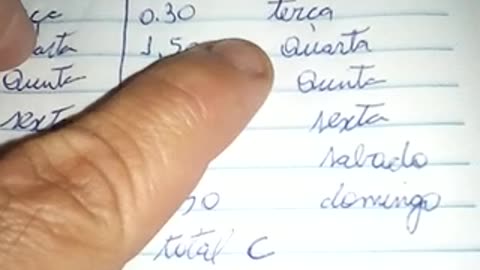 0.30 terça
Quarta
Quinta Quinta
sexta sexta
sabado
domingo
total C